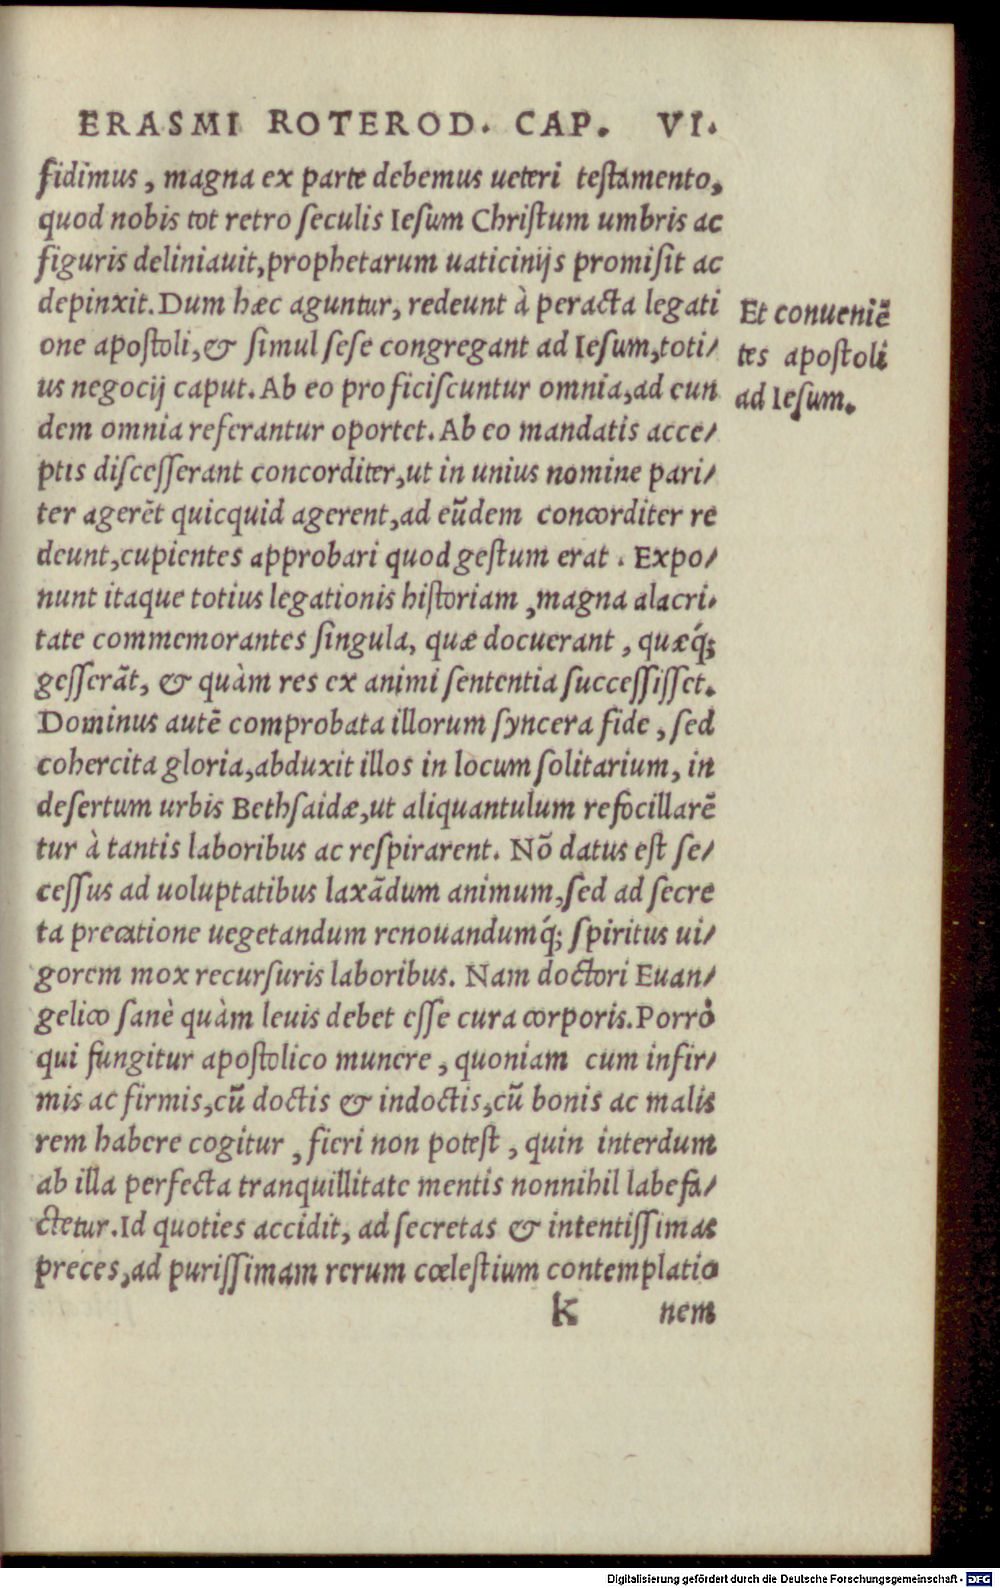 ERASMI ROTEROD. CAP. VI.
fidimus, magna ex parte debemus ueteri testamento,
quod nobis tot retro seculis Iesum Christum umbris ac
figuris deliniauit, prophetarum uaticinijs promisit ac
depinxit. Dum hæc aguntur, redeunt à peracta legati
one apostoli, & simul sese congregant ad Iesum, toti/
us negocij caput. Ab eo proficiscuntur omnia, ad eun
dem omnia referantur oportet. Ab eo mandatis acce/
ptis discesserant concorditer, ut in unius nomine pari/
ter agerẽt quicquid agerent, ad eũdem concorditer re
deunt, cupientes approbari quod gestum erat. Expo/
nunt itaque totius legationis historiam, magna alacri/
tate commemorantes singula, quæ docuerant, quæq́;
gesserãt, & quàm res ex animi sententia successisset.
Dominus autẽ comprobata illorum syncera fide, sed
cohercita gloria, abduxit illos in locum solitarium, in
desertum urbis Bethsaidæ, ut aliquantulum refocillarẽ
tur à tantis laboribus ac respirarent. Nõ datus est se/
cessus ad uoluptatibus laxãdum animum, sed ad secre
ta precatione uegetandum renouandumq́; spiritus ui/
gorem mox recursuris laboribus. Nam doctori Euan/
gelico sanè quàm leuis debet esse cura corporis. Porrò
qui fungitur apostolico munere, quoniam cum infir/
mis ac firmis, cũ doctis & indoctis, cũ bonis ac malis
rem habere cogitur, fieri non potest, quin interdum
ab illa perfecta tranquillitate mentis nonnihil labefa/
ctetur. Id quoties accidit, ad secretas & intentissimas
preces, ad purissimam rerum cœlestium contemplatio
k nem
Et conueniẽ
tes apostoli
ad Iesum.
Digitalisierung gefördert durch die Deutsche Forschungsgemeinschaft - DFG